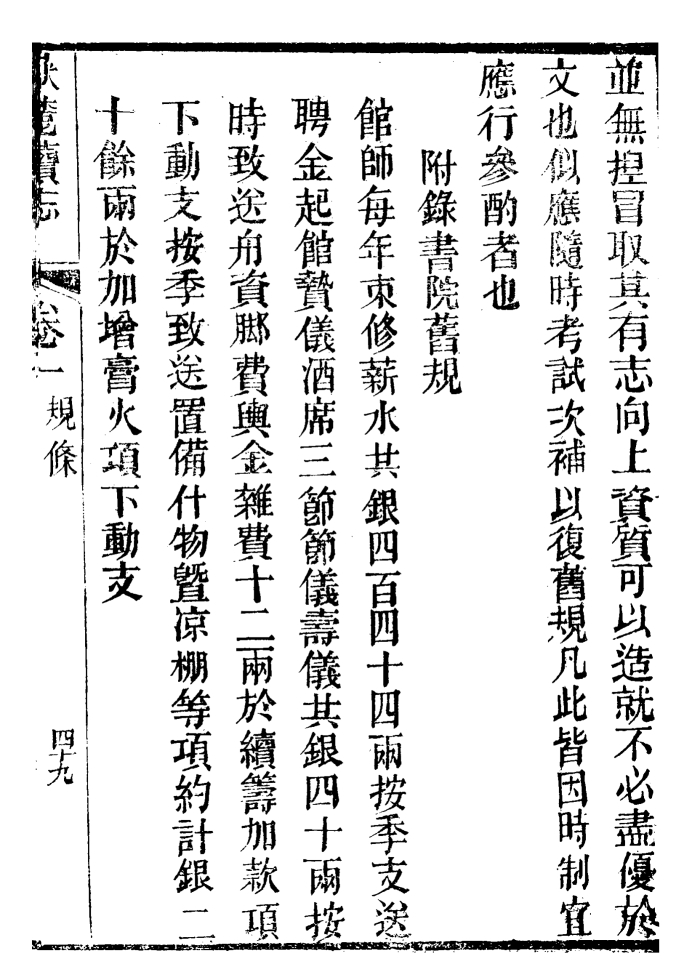 並無揑冒取其有志向上資質可以造就不必盡優於
文也似應隨時考試次補以復舊規凡此皆因時制宜
應行參酌者也
附錄書院舊規
館師每年束修薪水共銀四百四十四兩按季支送
聘金起館贄儀酒席三節節儀壽儀共銀四十兩按
時致送舟資脚費輿金雜費十二兩於續籌加款項
下動支按季致送置備什物曁凉棚等項約計銀二
十餘兩於加增膏火項下動支
卷一
規條
四十九